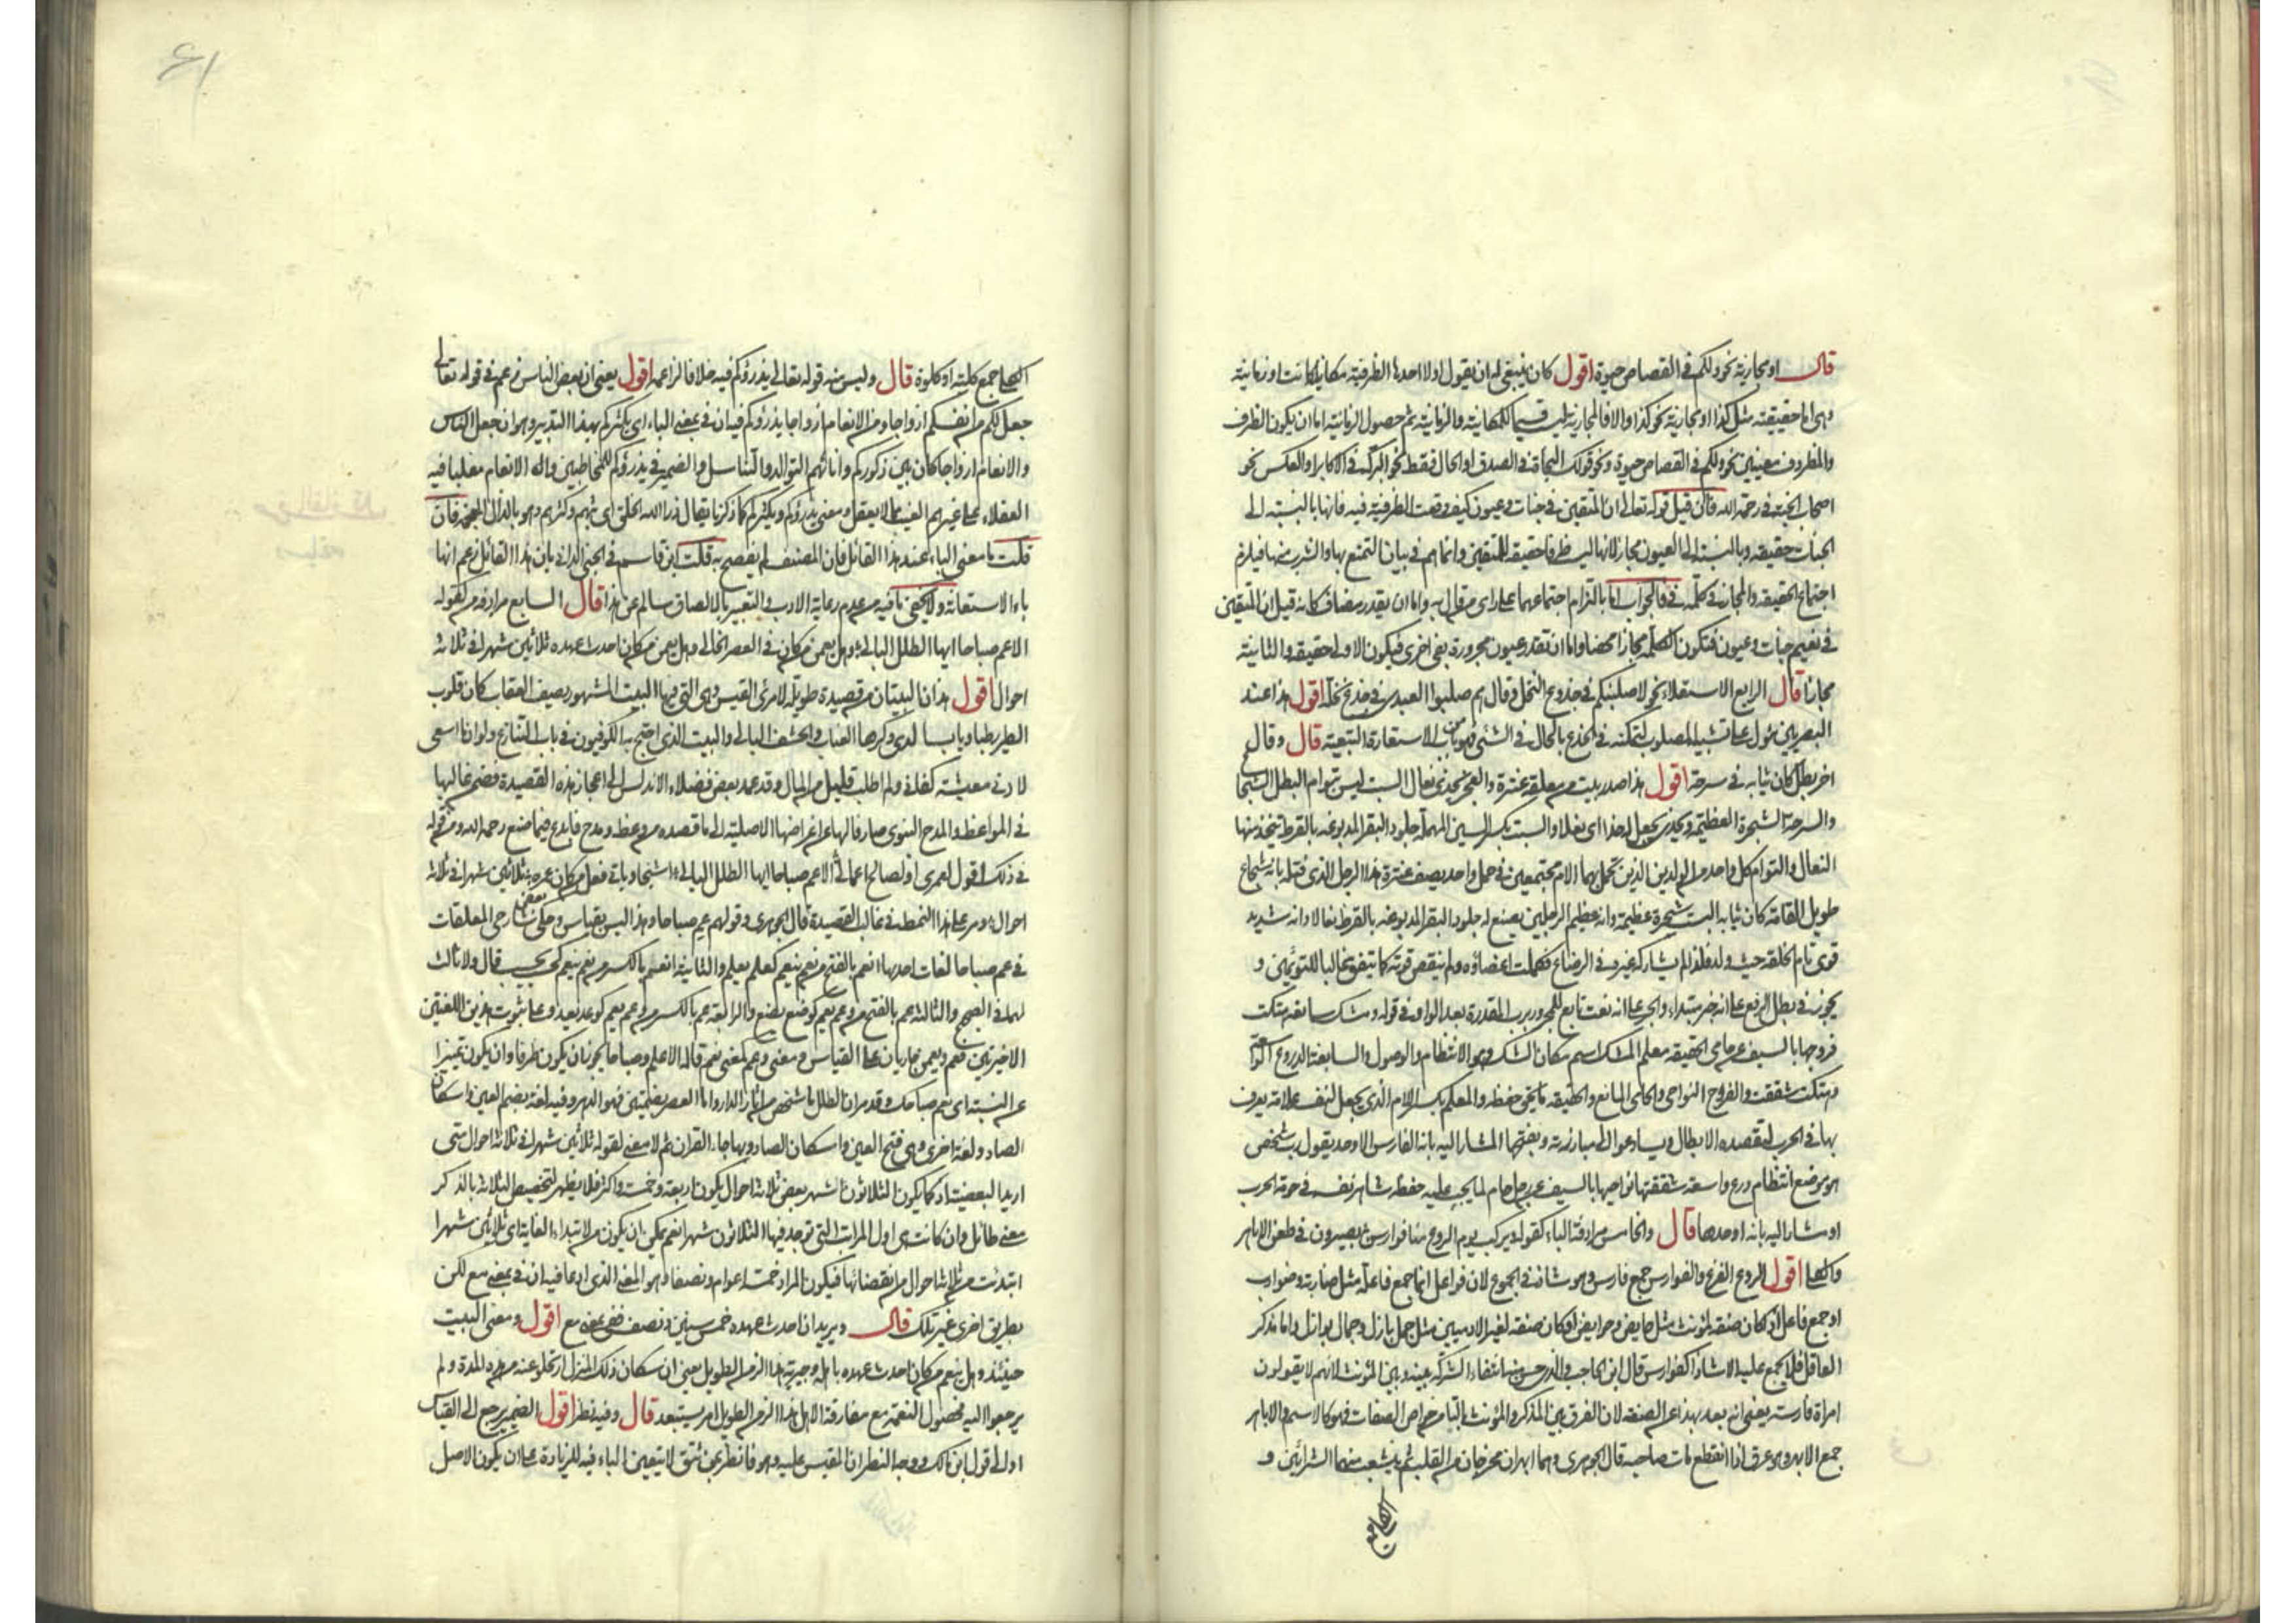 قال او مجازية نحو ولكم في القصاص حيوة اقول كان ينبغي له ان يقول اولا احدها الظرفية مكانية كانت او زمانية
وهي اما حقيقية مثل كذا او مجازية نحو كذا والا فالمجازية ليست قسيما للمكانية والزمانية ثم حصول الزمانية اما ان يكون الظرف
والمظروف معنيين نحو ولكم في القصاص حيوة ونحو قولك النجاة في الصدق او الحال فقط نحو البركة في الاكابر او العكس نحو
اصحاب الجنة في رحمة الله فان قيل قوله تعالى ان المتقين في جنات وعيون كيف وقعت الظرفية فيه فانها بالنسبة الى
الجنات حقيقة وبالنسبة الى العيون مجاز لانها ليست ظرفا حقيقة للمتقين وانما هم في بيان التمتع بها والشرب منها فيلزم
اجتماع الحقيقة والمجاز في كلمة في فالجواب اما بالتزام اجتماعهما على راى من قال به واما ان يقدر مضاف كانه قيل ان المتقين
في نعيم جنات وعيون فتكون الكلمة مجازا محضا واما ان تقدر عيون مجرورة بفي اخرى فيكون الاولى حقيقة والثانية
مجازا قال الرابع الاستعلاء نحو لاصلبنكم في جذوع النخل وقال هم صلبوا العبدى في جذع نخلة اقول هذا عند
البصريين مؤول على تشبيه المصلوب لتمكنه في الجذع بالحال في الشئ فهو من باب الاستعارة التبعية قال وقال
اخر بطل كان ثيابه في سرحة اقول هذا صدر بيت من معلقة عنترة والعجز يحذى نعال السبت ليس بتوام البطل الشجاع
والسرحة الشجرة العظيمة ويحذى يجعل له حذا اى نعلا والسبت بكسر السين المهملة جلود البقر المدبوغة بالقرظ يتخذ منها
النعال والتوام كل واحد من الولدين الذين تحمل بهما الام مجتمعين في حمل واحد يصف عنترة هذا الرجل الذى قتله بانه شجاع
طويل القامة كان ثيابه البست شجرة عظيمة وانه عظيم الرجلين يصنع له جلود البقر المدبوغة بالقرظ نعالا وانه شديد
قوى تام الخلقة حيث ولد فذا لم يشاركه غيره في الرضاع فكملت اعضاؤه ولم ينقص قوته كما يتفق غالبا للتوئمين و
يجوز في بطل الرفع على انه خبر مبتداء والجر على انه نعت تابع للمجرور برب المقدرة بعد الواو في قوله ومشك سابغة هتكت
فروجها بالسيف عن حامى الحقيقة معلم المشك اسم مكان الشك وهو الانتظام والوصول والسابغة الدروع الواسعة
وهتكت شققت والفروج النواحى والحامى المانع والحقيقة ما يحق حفظه والمعلم بكسر اللام الذى يجعل لنفسه علامة يعرف
بها في الحرب ليقصده الابطال ويسادعوا الى مبارزته وبفتحها المشار اليه بانه الفارس الاوحد يقول رب شخص
هو موضع انتظام درع واسعة شققتها نواحيها بالسيف عن رجل حام لما يجب عليه حفظه شاهر نفسه في حومة الحرب
او مشار اليه بانه اوحدها قال والخامس مرادفة الباء كقوله ويركب يوم الروع منا فوارس بصيرون في طعن الاباهر
والكلى اقول الروع الفزع والفوارس جمع فارس وهو شاذ في الجموع لان فواعل انما جمع فاعلة مثل ضاربة وضوارب
او جمع فاعل اذ كان صفة لمؤنث مثل حايض وحوايض او كان صفة لغير الادميين مثل جمل بازل وجمال بوازل واما مذكر
العاقل فلا يجمع عليه الا شاذا كفوارس قال ابن الحاجب والذى حسن منه انتفاء الشركة بينه وبين المؤنث لانهم لا يقولون
امراة فارسة يعنى انه بعد بهذا عن الصفة لان الفرق بين المذكر والمؤنث بالتا من خواص الصفات فهو كالاسم والاباهر
جمع الابهر وهو عرق اذا انقطع مات صاحبه قال الجوهرى وهما ابهران يخرجان من القلب ثم يتشعب منهما الشرائين و
الكلى جمع
الكلى جمع كلية او كلوة قال وليس منه قوله تعالى يذرؤكم فيه خلافا لزاعمه اقول يعنى ان بعض الناس زعم في قوله تعالى
جعل لكم من انفسكم ازواجا ومن الانعام ازواجا يذرؤكم فيه ان في بمعنى الباء اى يكثركم بهذا التدبير وهو ان جعل للناس
والانعام ازواجا كان بين ذكوركم واناثهم التوالد والتناسل والضمير في يذرؤكم للمخاطبين والى الانعام مغلبا فيه
العقلاء على غيرهم الغيب مما لا يعقل ومعنى يذرؤكم ويكثركم كما ذكرنا يقال ذرا الله الخلق اى بثهم وكثرهم وهو بالذال المعجمة فان
قلت ما معنى الباء عند هذا القائل فان المصنف لم يفصح به قلت ابن قاسم في الجنى الدانى بان هذا القائل زعم انها
باء الاستعانة ولا يخفى ما فيه من عدم رعاية الادب والتعبير بالالصاق سالم عن هذا قال السابع مرادفة من كقوله
الا عم صباحا ايها الطلل البالى وهل يعمن من كان في العصر الخالى وهل يعمن من كان احدث عهده ثلاثين شهرا في ثلاثة
احوال اقول هذان البيتان من قصيدة طويلة لامرئ القيس وهى التي فيها البيت المشهور يصف العقاب كان قلوب
الطير رطبا ويابسا لدى وكرها العناب والحشف البالى والبيت الذى احتج به الكوفيون في باب التنازع ولو انما اسعى
لادنى معيشة كفانى ولم اطلب قليل من المال وقد عمد بعض فضلاء الاندلس الى اعجاز هذه القصيدة فضمن غالبها
في المواعظ والمدح النبوى صارفا لها عن اغراضها الاصلية الى ما قصده من وعظ ومدح فابدع فيما صنع رحمه الله ومن قوله
في ذلك اقول لعمرى او لصالح اعمالى الا عم صباحا ايها الطلل البالى اشتجاد باتى فعل من كان عمره ثلاثين شهرا في ثلاثة
احوال ومر على هذا النمط في غالب القصيدة قال الجوهرى وقولهم عم صباحا وهذا ليس بقياس وحكى بعض شارحى المعلقات
في عم صباحا لغات احدها انعم بالفتح من نعم ينعم كعلم يعلم والثانية انعم بالكسر من نعم ينعم كحسب يحسب قال ولا ثالث
لهما في الصحيح والثالثة عم بالفتح من وعم يعم كوضع يضع والرابعة عم بالكسر من وعم يعم كوعد يعد وعلى ثبوت هذين اللغتين
الاخيرتين فعم ويعمن جاريان على القياس ومعنى وعم كمعنى نعم قاله الاعلم وصباحا يجوز ان يكون ظرفا وان يكون تمييزا
عن النسبة اى نعم صباحك وقد مر ان الطلل ما شخص من اثار الدار واما العصر بضمتين فهو الدهر وفيه لغة بضم العين واسكان
الصاد ولغة اخرى وهى فتح العين واسكان الصاد وبها جاء القران ثم لا معنى لقوله ثلاثين شهرا في ثلاثة احوال متى
اريد البعضية اذ كما يكون الثلاثون الشهر بعض ثلاثة احوال يكون اربعة وخمسة واكثر فلا يظهر لتخصيص الثلاثة بالذكر
معنى طائل وان كانت هى اول المراتب التي توجد فيها الثلاثون شهرا نعم يمكن ان يكون من لابتداء الغاية اى ثلاثين شهرا
ابتدئت من ثلاثة احوال من انقضائها فيكون المراد خمسة اعوام ونصفا وهو المعنى الذى ادعا فيه ان في بمعنى مع لكن
بطريق اخرى غير تلك قال ويريد ان احدث عهده خمس سنين ونصف ففي بمعنى مع اقول ومعنى البيت
حينئذ وهل ينعم من كان احدث عهده باهله وجيرته هذا الزمن الطويل يعنى ان سكان ذلك المنزل ارتحلوا عنه من هذه المدة ولم
يرجعوا اليه فحصول النعمة مع مفارقة الاهل هذا الزمن الطويل امر يستبعد قال وفيه نظر اقول الضمير يرجع الى القياس
او الى قول ابن مالك ووجه النظر ان المقيس عليه وهو فانظر بمن تثق لا يتعين الباء فيه للزيادة على ان يكون الاصل